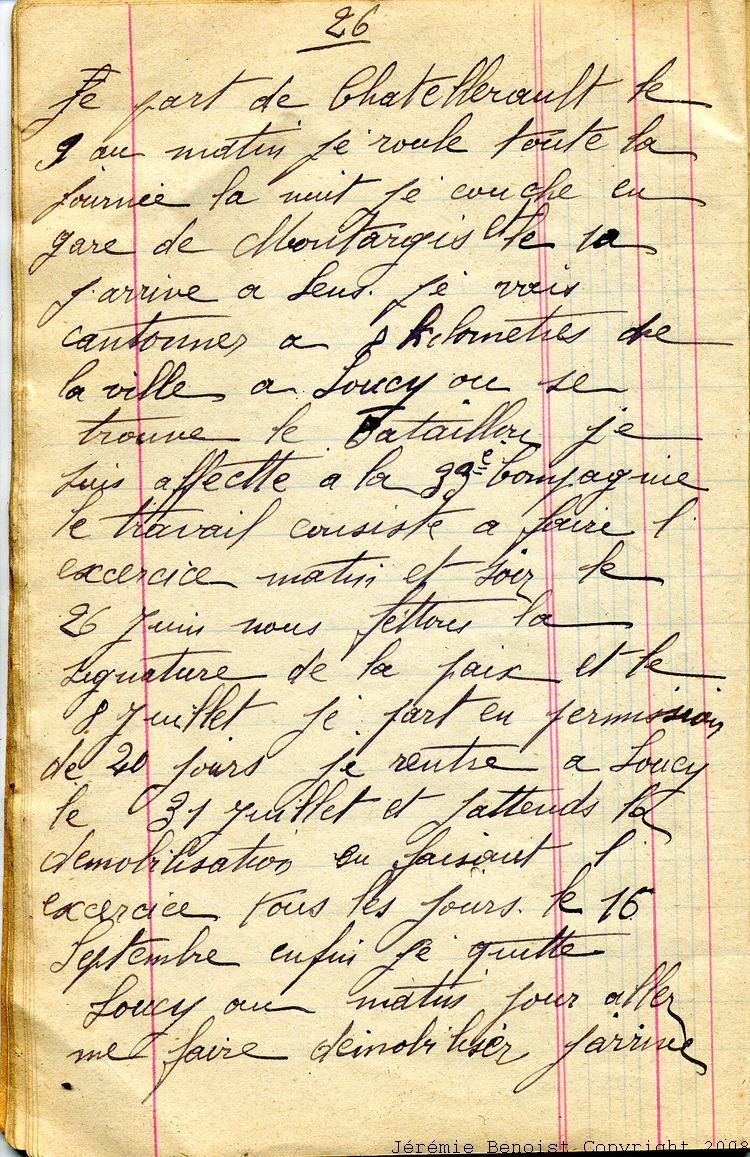 26
Je part de Chatellerault le
9 au matin je roule toute la
journée la nuit je couche en
gare de Montargis et le 10
j'arrive a Sens. je vais
cantonner a 8 kilometres de
la ville a Soucy ou se
trouve le Bataillon je
suis affectte a la 33e Compagnie
le travail consiste a faire l'
excercice matin et soir le
26 Juin nous fettons la
signature de la paix et le
8 Juillet je part en permission
de 20 jours je rentre a Soucy
le 31 Juillet et j'attends la
demobilisation en faisant l'
excercice tous les jours. le 16
Septembre enfin je quitte
Soucy au matin pour aller
me faire démobiliser j'arrive
Jérémie Benoist Copyright 2008